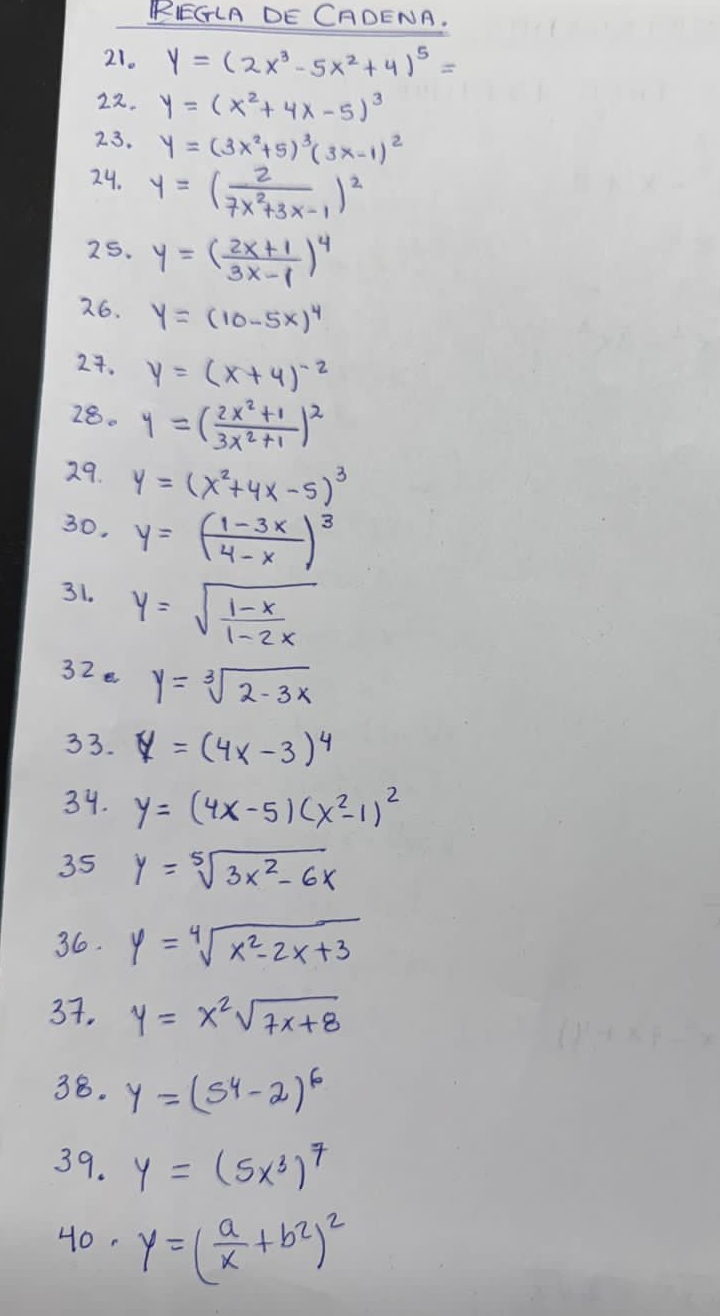 REGLA DE CADENA.
21. y = (2x³-5x²+4)⁵ =
22. y = (x²+4x-5)³
23. y = (3x²+5)³(3x-1)²
24. y = (2/(7x²+3x-1))²
25. y = ((2x+1)/(3x-1))⁴
26. y = (10-5x)⁴
27. y = (x+4)⁻²
28. y = ((2x²+1)/(3x²+1))²
29. y = (x²+4x-5)³
30. y = ((1-3x)/(4-x))³
31. y = √((1-x)/(1-2x))
32. y = ³√(2-3x)
33. y = (4x-3)⁴
34. y = (4x-5)(x²-1)²
35 y = ⁵√(3x²-6x)
36. y = ⁴√(x²-2x+3)
37. y = x²√(7x+8)
38. y = (5⁴-2)⁶
39. y = (5x³)⁷
40. y = (a/x+b²)²